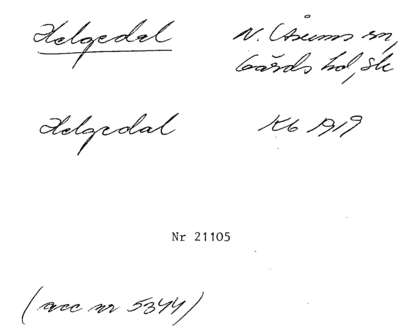 Helgedal N. Åsums sn,
Gärds hd, sk
Helgedal Kb 1919
Nr 21105
(acc nr 5344)